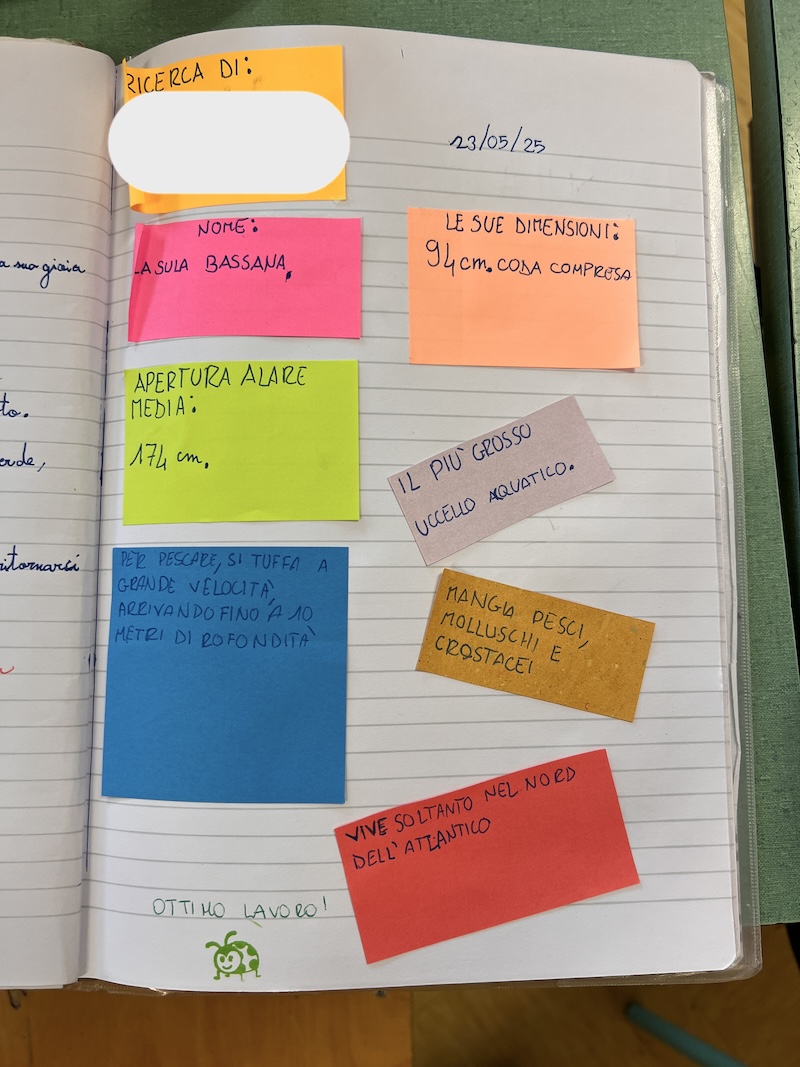 RICERCA DI:
23/05/25
NOME:
LA SULA BASSANA,
LE SUE DIMENSIONI:
94 cm. CODA COMPRESA
APERTURA ALARE
MEDIA:
174 cm.
IL PIÙ GROSSO
UCCELLO AQUATICO.
PER PESCARE, SI TUFFA A
GRANDE VELOCITÀ,
ARRIVANDO FINO A 10
METRI DI ROFONDITÀ
MANGIA PESCI,
MOLLUSCHI E
CROSTACEI
VIVE SOLTANTO NEL NORD
DELL'ATLANTICO
OTTIMO LAVORO!
a sua gioia
to.
erde,
ritornarci